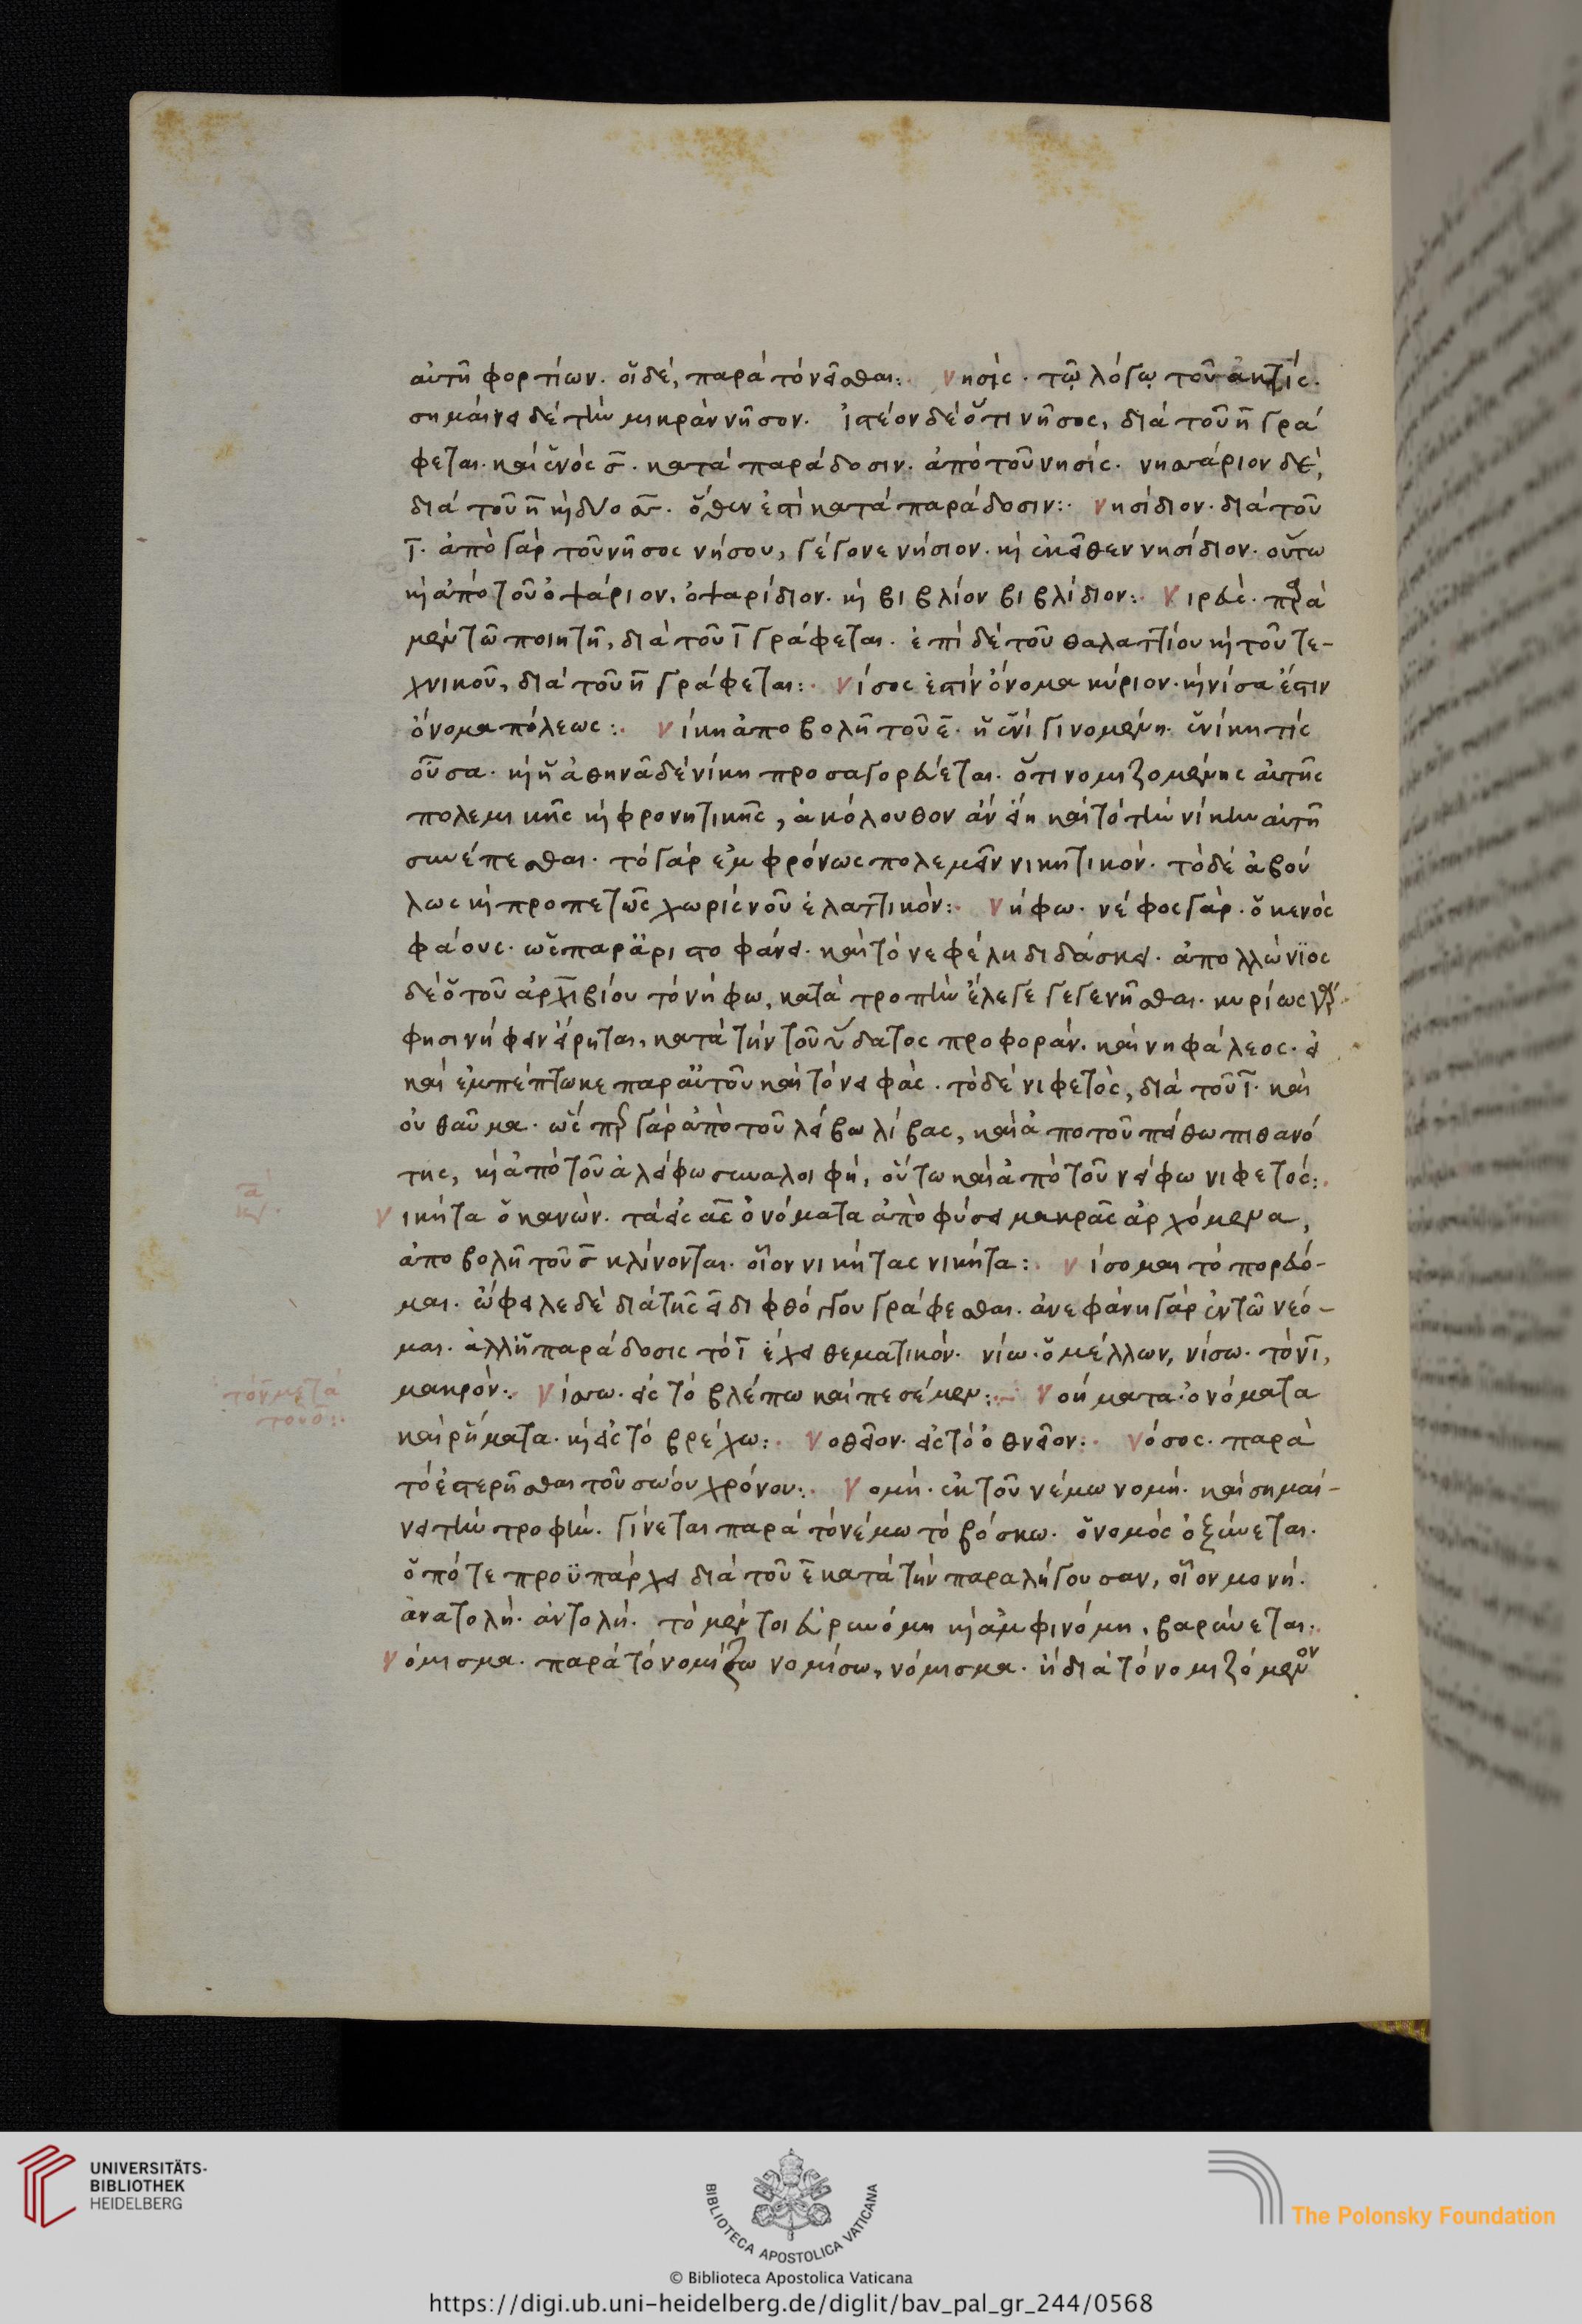 αὐτῆ φορτίων. οἱ δὲ, παρὰ τὸ νεῖσθαι: νησίς. τῷ λόγῳ τοῦ ἀκτίς.
σημαίνει δὲ τὴν μικρὰν νῆσον. ἰστέον δὲ ὅτι νῆσος, διὰ τοῦ η γρά
φεται. καὶ ἑνὸς σ. κατὰ παράδοσιν. ἀπὸ τοῦ νησίς. νησσάριον δὲ,
διὰ τοῦ η καὶ δύο σσ. ὅθεν ἐστὶ κατὰ παράδοσιν: νησίδιον. διὰ τοῦ
ι. ἀπὸ γὰρ τοῦ νῆσος νήσου, γέγονε νήσιον. καὶ ἐκεῖθεν νησίδιον. οὕτω
καὶ ἀπὸ τοῦ ὀψάριον, ὀψαρίδιον. καὶ βιβλίον βιβλίδιον: νιρεὺς. παρὰ
μὲν τῶ ποιητῆ, διὰ τοῦ ι γράφεται. ἐπὶ δὲ τοῦ θαλαττίου καὶ τοῦ τε-
χνικοῦ, διὰ τοῦ η γράφεται: νίσος ἐστὶν ὄνομα κύριον. καὶ νίσα ἔστιν
ὄνομα πόλεως: νίκη ἀποβολῆ τοῦ ε. ἡ ἑνὶ γινομένη. ἑνίκη τίς
οὖσα. καὶ ἡ ἀθηνᾶ δὲ νίκη προσαγορεύεται. ὅτι νομιζομένης αὐτῆς
πολεμικῆς καὶ φρονητικῆς, ἀκόλουθον ἂν εἴη καὶ τὸ τὴν νίκην αὐτῆ
συνέπεσθαι. τὸ γὰρ ἐμφρόνως πολεμεῖν νικητικόν. τὸ δὲ ἀβού
λως καὶ προπετῶς χωρὶς νοῦ ἐλαττικὸν: νήφω. νέφος γὰρ. ὁ κενὸς
φάους. ὡς παρ' ἀριστοφάνει. καὶ τὸ νεφέλη διδάσκει. ἀπολλώνιος
δὲ ὁ τοῦ ἀρχιβίου τὸ νήφω, κατὰ τροπὴν ἔλεγε γεγενῆσθαι. κυρίως γὰρ
φησι νήφειν εἴρηται, κατὰ τὴν τοῦ ὕδατος προφοράν. καὶ νηφάλεος. εἰ
καὶ ἐμπέπτωκε παρ' αὐτοῦ καὶ τὸ νειφὰς. τὸ δὲ νιφετὸς, διὰ τοῦ ι. καὶ
οὐ θαῦμα. ὥσπερ γὰρ ἀπὸ τοῦ λείβω λίβας, καὶ ἀπο τοῦ πείθω πιθανό
της, καὶ ἀπὸ τοῦ ἀλείφω συναλοιφή, οὕτω καὶ ἀπὸ τοῦ νείφω νιφετός:
νικῆτα ὁ κανὼν. τὰ εἰς ας ὀνόματα ἀπὸ φύσει μακρᾶς ἀρχόμενα,
ἀποβολῆ τοῦ σ κλίνονται. οἷον νικήτας νικήτα: νίσομαι τὸ πορεύο-
μαι. ὤφειλε δὲ διὰ τῆς ει διφθόγγου γράφεσθαι. ἀνεφάνη γὰρ ἐν τῶ νεό-
μαι. ἀλλ' ἡ παράδοσις τὸ ι ἔχει θεματικόν. νίω. ὁ μέλλων, νίσω. τὸ νι,
μακρόν: νίσσω. εἰς τὸ βλέπω καὶ πεσέμεν: νοήματα. ὀνόματα
καὶ ῥήματα. καὶ εἰς τὸ βρέχω: νοθεῖον. εἰς τὸ ὀθνεῖον: νόσος. παρὰ
τὸ ἐστερῆσθαι τοῦ σώου χρόνου: νομή. ἐκ τοῦ νέμω νομή. καὶ σημαί-
νει τὴν τροφὴν. γίνεται παρὰ τὸ νέμω τὸ βόσκω. ὁ νομὸς ὀξύνεται.
ὁπότε προϋπάρχει διὰ τοῦ ε κατὰ τὴν παραλήγουσαν, οἷον μονή.
ἀνατολή. ἀντολή. τὸ μέντοι εὐρυνόμη καὶ ἀμφινόμη, βαρύνεται:
νόμισμα. παρὰ τὸ νομίζω νομίσω, νόμισμα. ἢ διὰ τὸ νομιζόμενον
α
κγ
τὸν μετὰ
τοῦ σ:
UNIVERSITÄTS-
BIBLIOTHEK
HEIDELBERG
BIBLIOTECA APOSTOLICA VATICANA
The Polonsky Foundation
© Biblioteca Apostolica Vaticana
https://digi.ub.uni-heidelberg.de/diglit/bav_pal_gr_244/0568